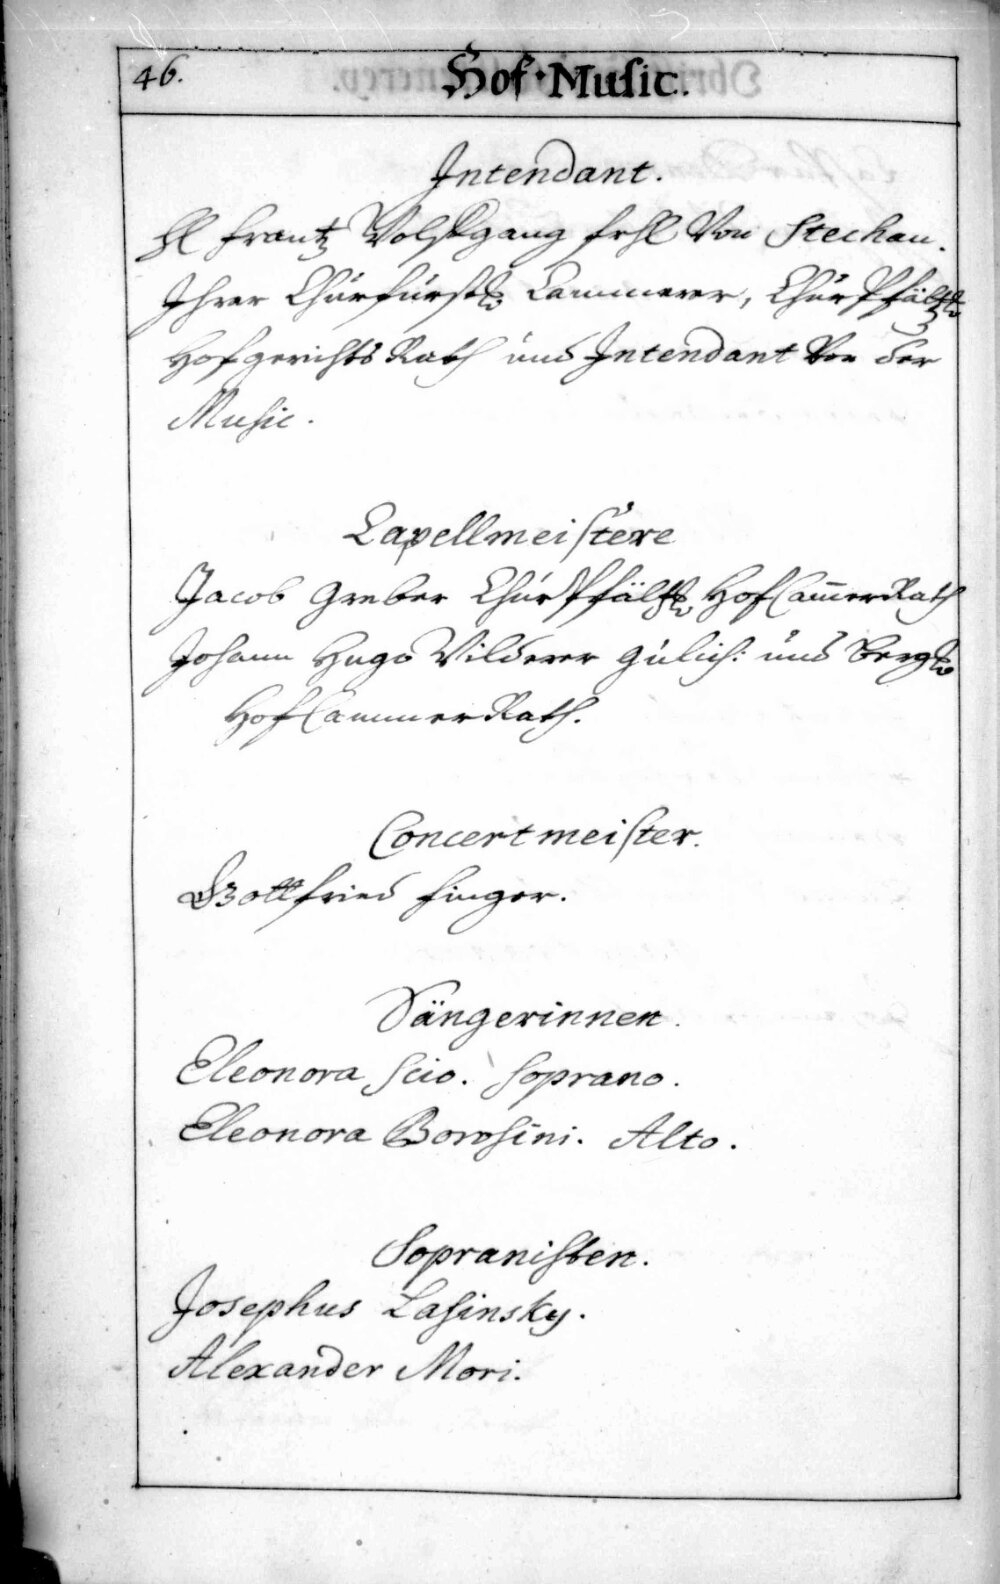 46.
Hof-Music.
Intendant.
H Frantz Wolfgang frhl Von Stechau.
Ihrer Chürfürstl Cammerer, Chür Pfältzl
Hofgerichts Rath und Intendant Von der
Music.
Capellmeistere
Jacob Greber Chür Pfältzl Hof Cam̄er Rath
Johann Hugo Wilderer Gülich: und Bergl
Hof Cammer Rath.
Concertmeister.
Gottfried Finger.
Sängerinnen.
Eleonora Scio. Soprano.
Eleonora Borosini. Alto.
Sopranisten.
Josephus Lasinsky.
Alexander Mori.